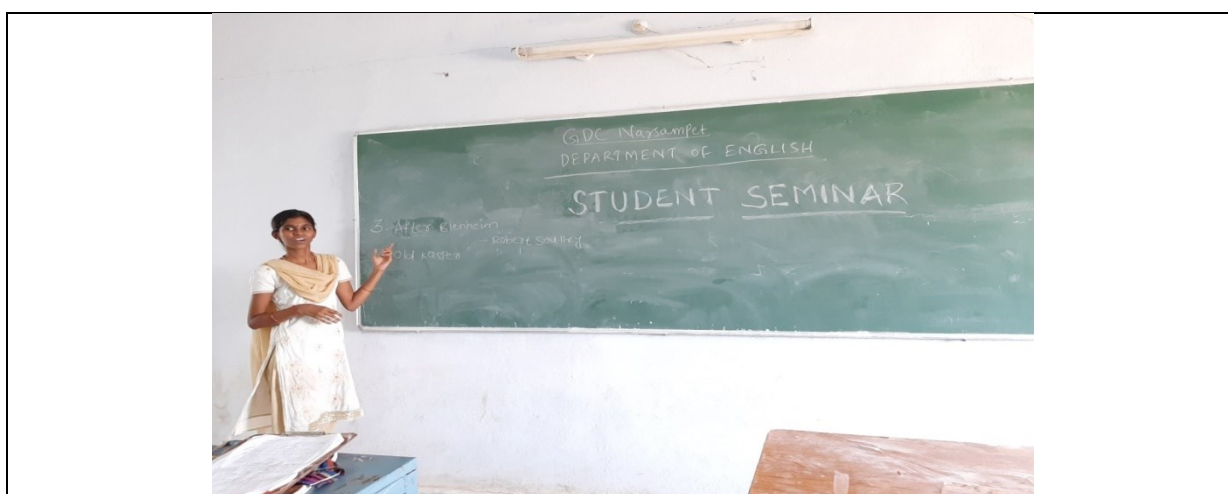 GDC Narsampet
DEPARTMENT OF ENGLISH
STUDENT SEMINAR
3. After Blenheim
- Robert Southey
Old